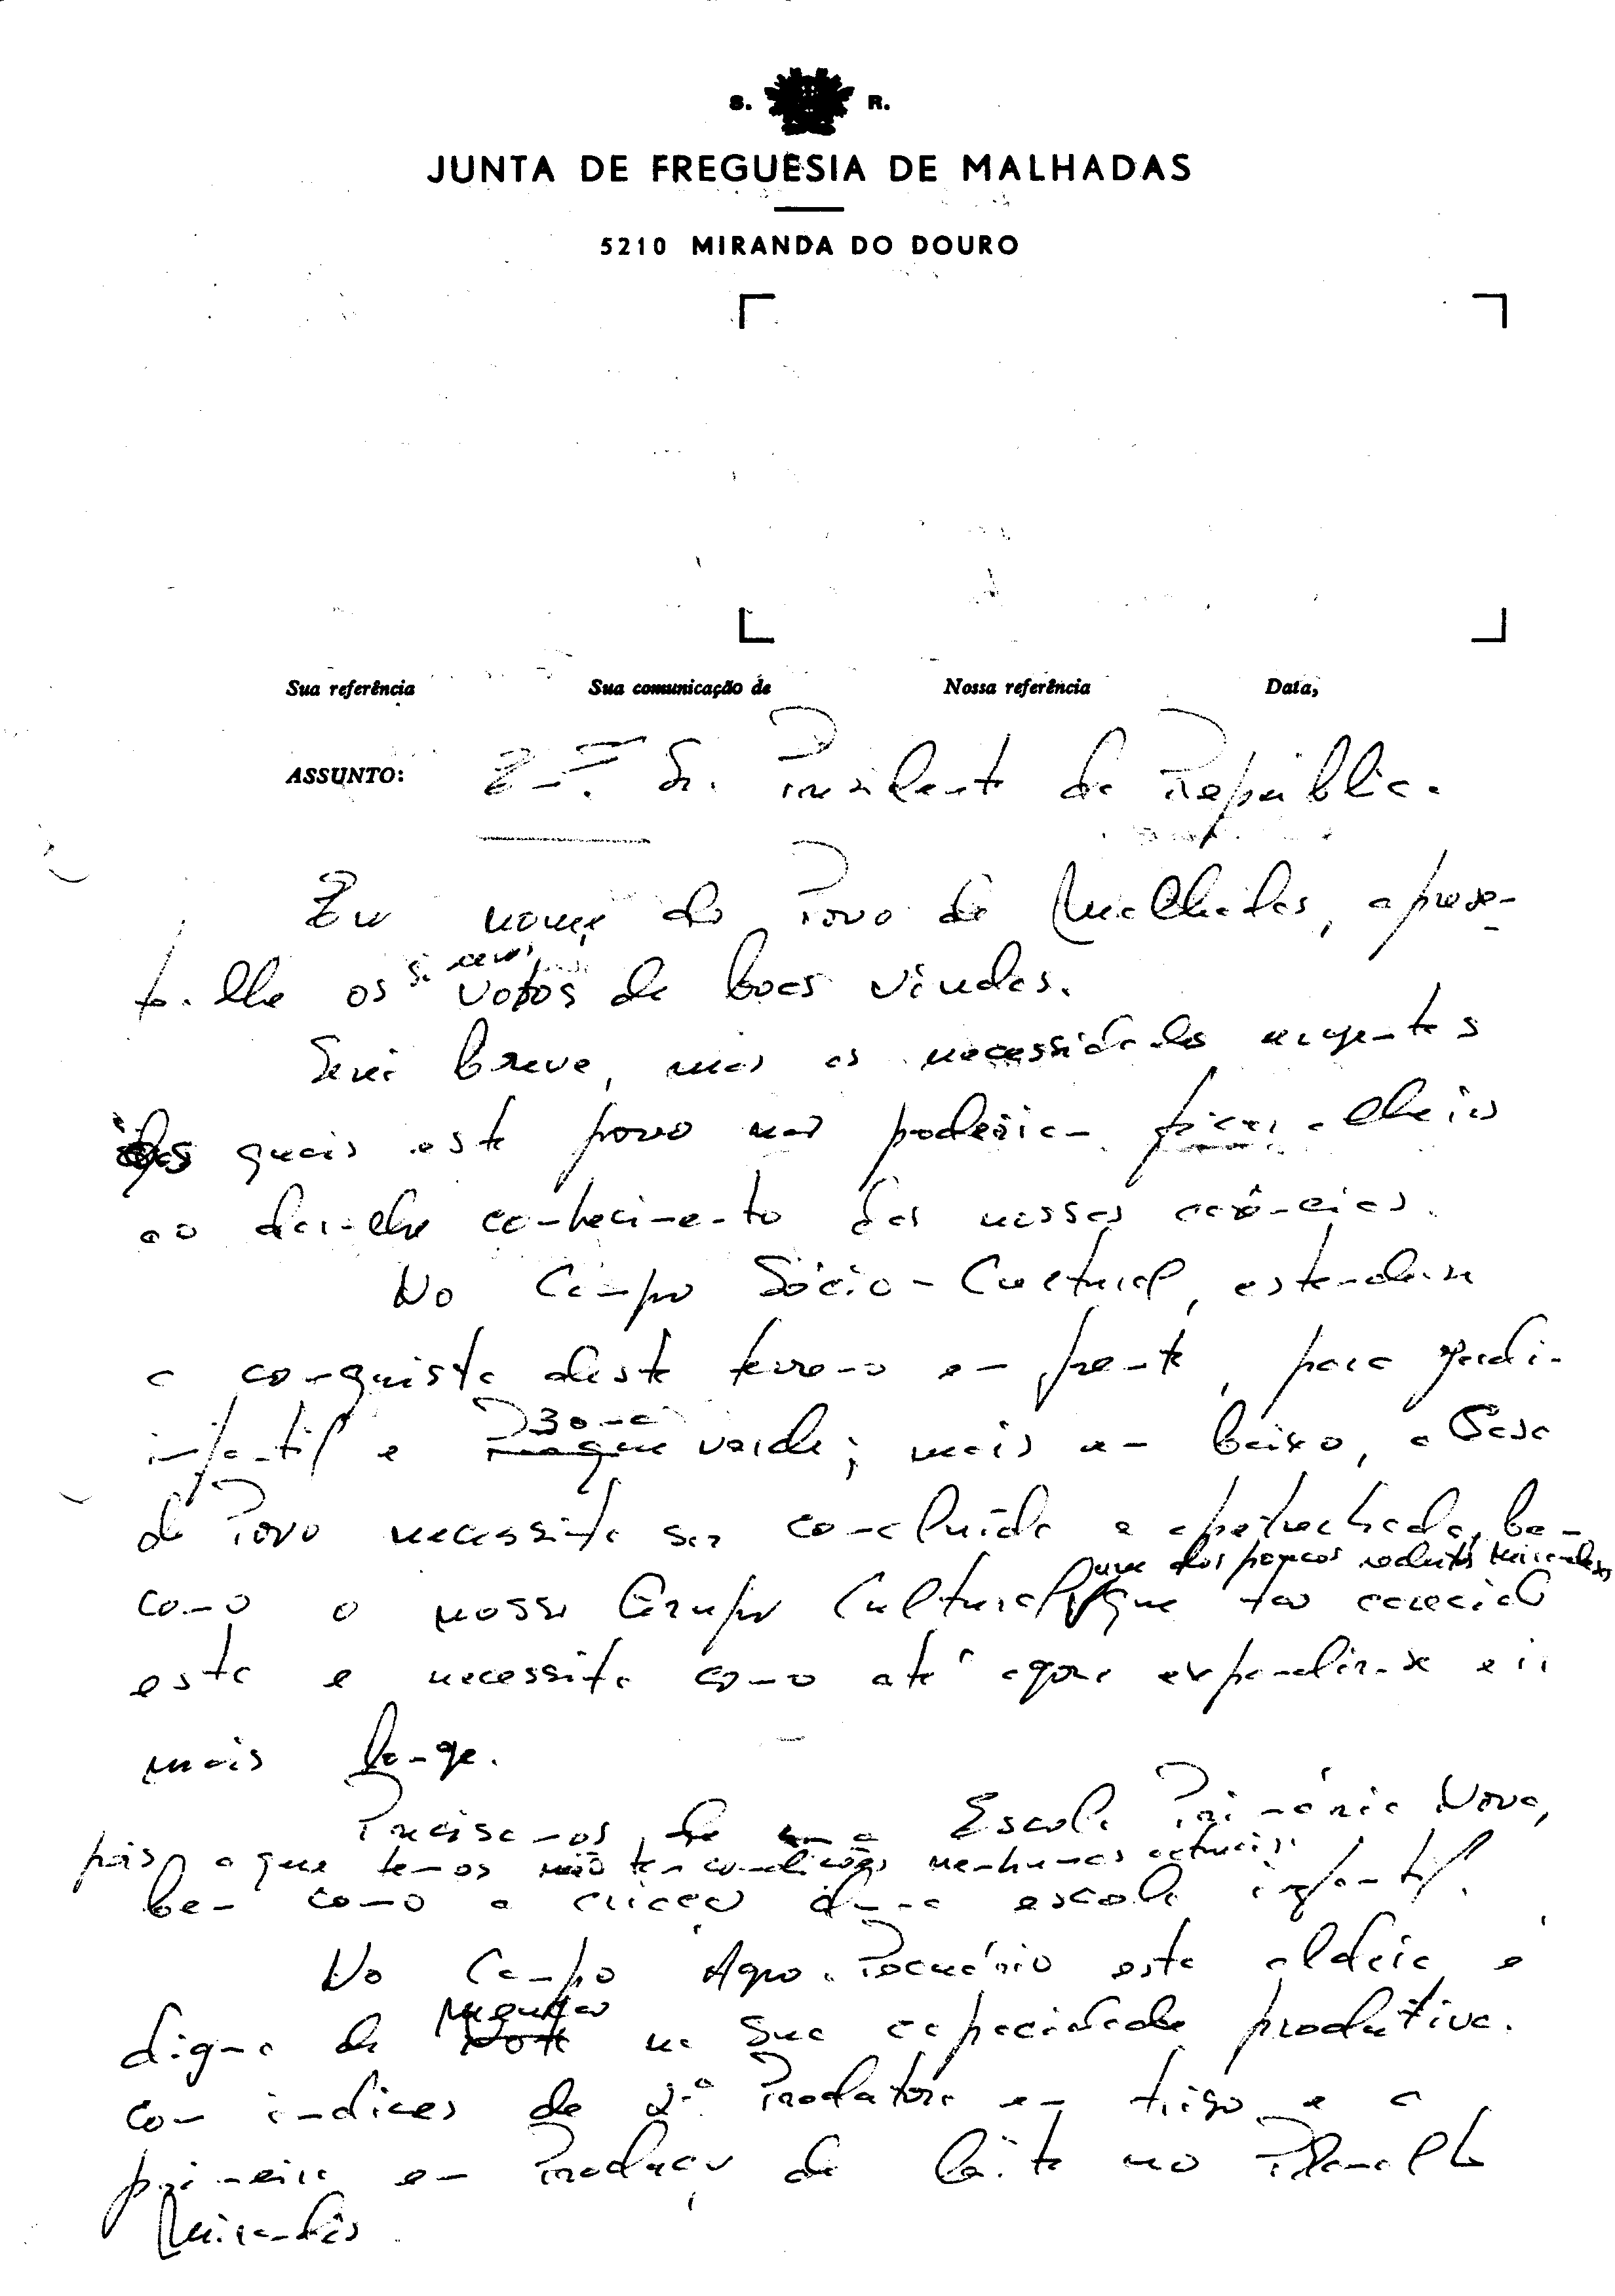 S. R.
JUNTA DE FREGUESIA DE MALHADAS
5210 MIRANDA DO DOURO
Sua referência Sua comunicação de Nossa referência Data,
ASSUNTO: Sr. Presidente da República.
Em nome do Povo de Malhadas, aprese-
to-lhe os sinceros votos de boas vindas.
Serei breve, mas as necessidades urgentes
das quais este povo não poderiam ficar alheias
ao dar-lhe conhecimento das nossas carências.
No Campo Sócio-Cultural, estendem
a conquista deste terreno em frente, para Jardim
infantil e Zona verde; mais em baixo, a Casa
do Povo necessita ser concluída e apetrechada, bem
um dos poucos redutos Mirandeses
como o nosso Grupo Cultural, que tão carecido
está e necessita como até agora expandir-se e ir
mais longe.
Precisamos de uma Escola Primária Nova,
pois a que temos não tem condições nenhumas actuais.
bem como a criação duma escola infantil.
No Campo Agro-Pecuário esta aldeia é
digna de menção na sua capacidade produtiva.
com indices de 2ª Produtora em trigo e a
primeira em Produção de leite no Planalto
Mirandês.